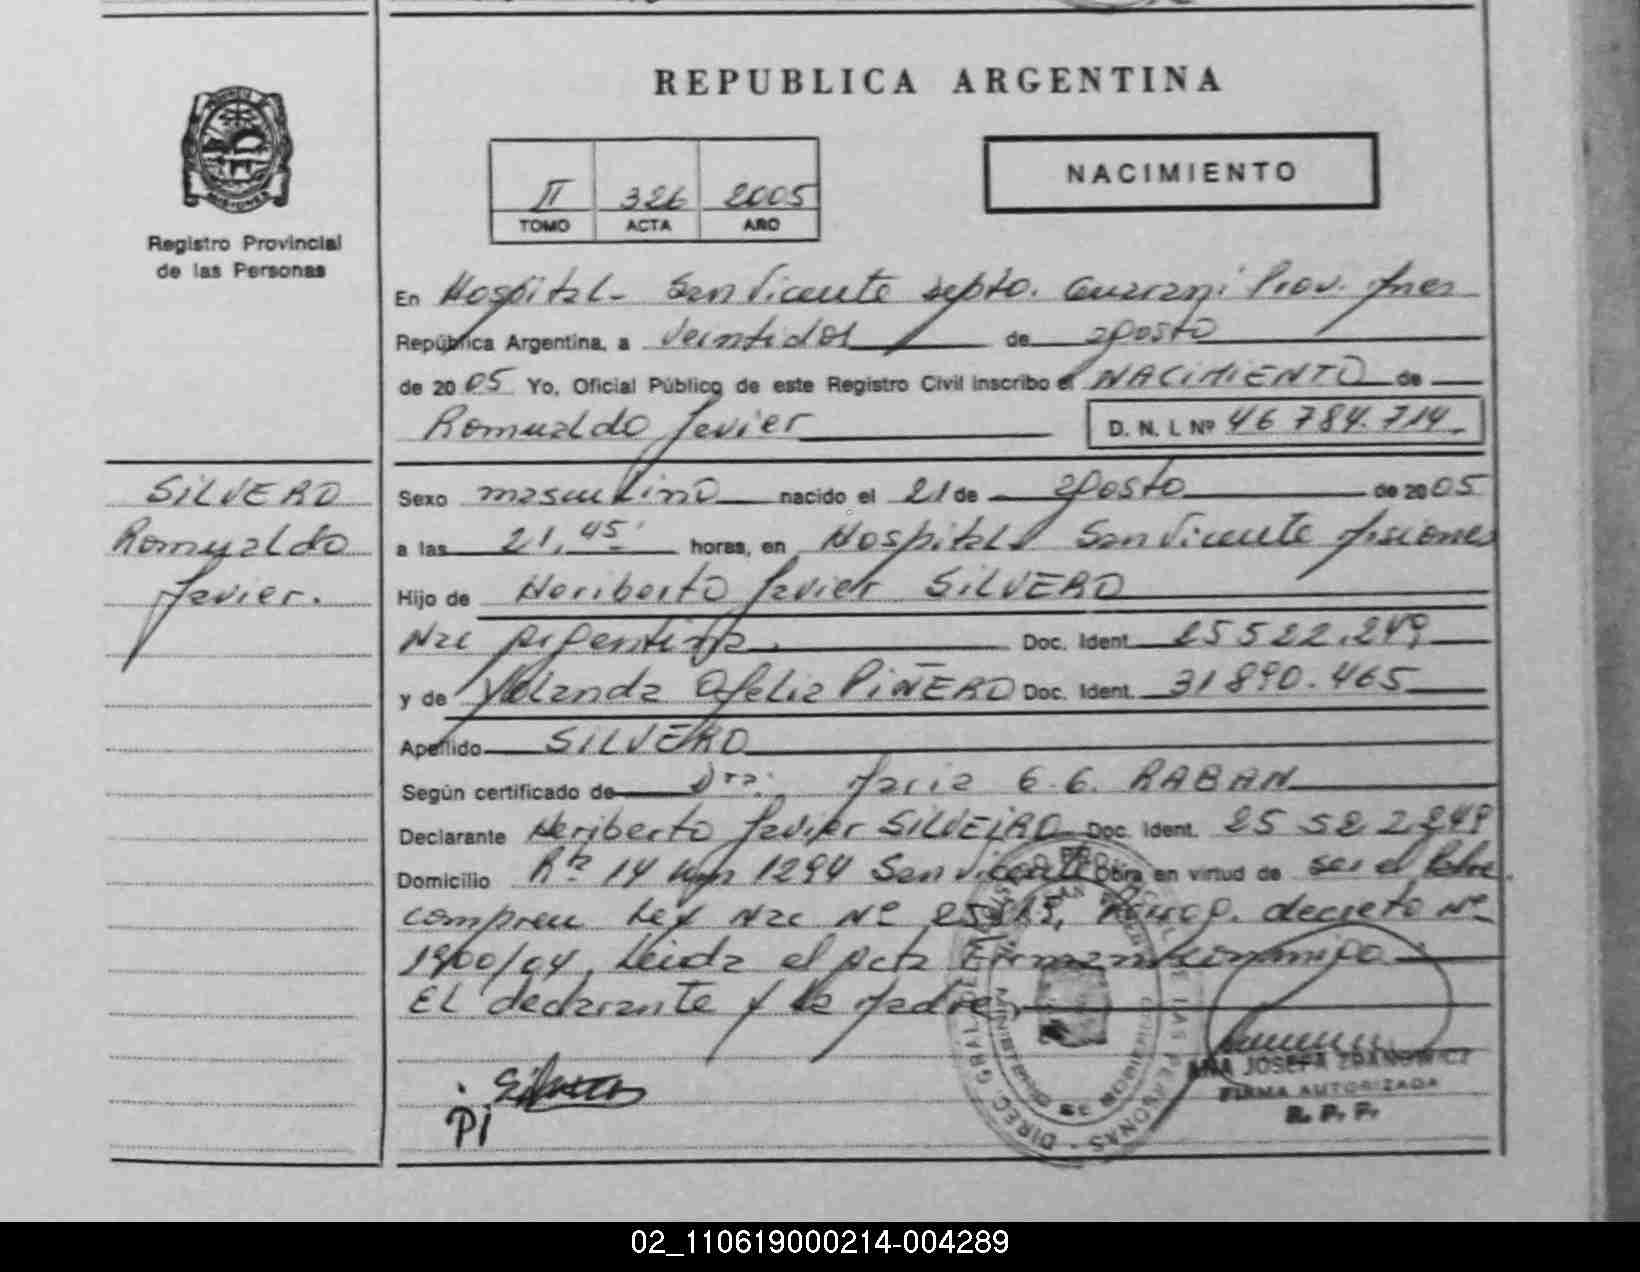 REPUBLICA ARGENTINA
NACIMIENTO
II 326 2005
TOMO ACTA AÑO
MISIONES
Registro Provincial
de las Personas
En Hospital - San Vicente Depto. Guarani Prov. Mnes
República Argentina, a Veintidos de agosto
de 2005 Yo, Oficial Público de este Registro Civil inscribo el NACIMIENTO de
Romualdo Javier D. N. I. Nº 46 784.714
SILVERO
Romualdo
Javier.
Sexo masculino nacido el 21 de agosto de 2005
a las 21,45 horas, en Hospital San Vicente Misiones
Hijo de Heriberto Javier SILVERO
Nac Argentina Doc. Ident. 25522.249
y de Yolanda Ofelia PIÑERO Doc. Ident. 31890.465
Apellido SILVERO
Según certificado de Dra: Maria G. G. RABAN
Declarante Heriberto Javier SILVEIRO Doc. Ident. 25 522 249
Domicilio Rta 14 km 1294 San Vicente Obra en virtud de ser el Padre
compren Ley Nac Nº decreto Nº
1900/04, Leida el Acta Firman conmigo
El declarante y la Madre
PI
ANA JOSEFA
FIRMA AUTORIZADA
R. P. P.
DIREC. GRAL. DEL REGISTRO PROVINCIAL DE LAS PERSONAS
MINISTERIO DE GOBIERNO
02_110619000214-004289